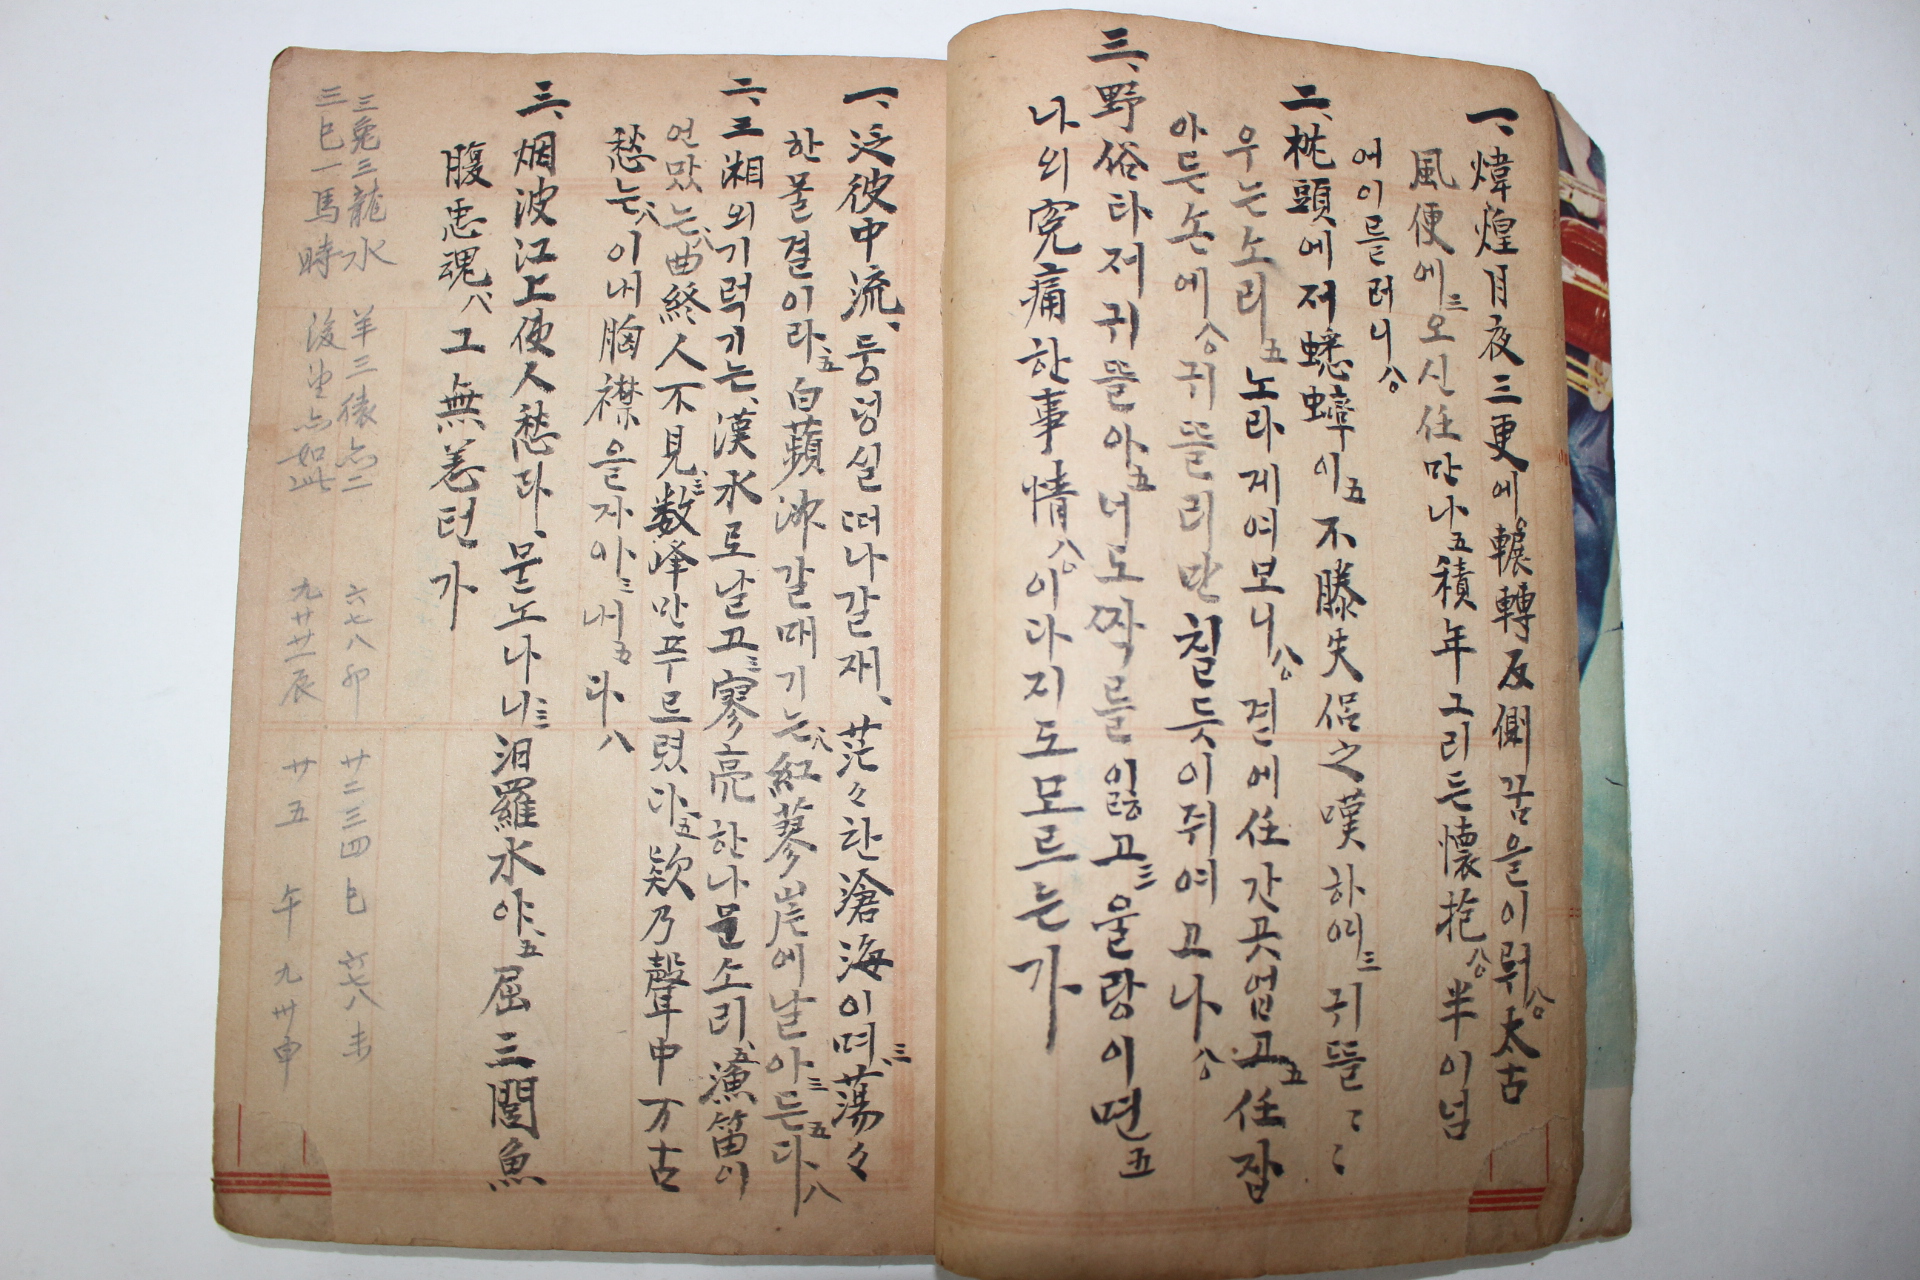 一、煒煌月夜三更에輾轉反側꿈을이뤄太古
風便에三오신任만나五積年그리든懷抱公半이넘
어이를러니公
二、枕頭에저蟋蟀이五不勝失侶之嘆하여三귀뚤ㄷㄷ
우는소리五노라게여모니公겯에任간곳업고五任잡
아든손에公귀뚤리만칠듯이쥐여고나公
三、野俗타저귀뚤아五너도짝를잃고三울랑이면五
나외寃痛한事情公이다지도모르는가
一、泛彼中流、둥덩실떠나갈재、茫々한滄海이며三蕩々
한물결이라五白蘋洲갈매기는八紅蓼岸에날아三든五다八
二、三湘외기럭기는、漢水로날고三寥亮한나문소리五漁笛이
언만는八曲終人不見三数峰만푸르렀다五欸乃聲中万古
愁는八이내胸襟을자아三내五다八
三、烟波江上使人愁라、묻노나니三汨羅水야五屈三閭魚
腹忠魂八그無恙턴가
三兔三龍水 羊三猿亦二 六七八卯 廿二三四巳 六七八未
三巳一馬時 後望亦如此 九廿廿一辰 廿五 午 九卅申